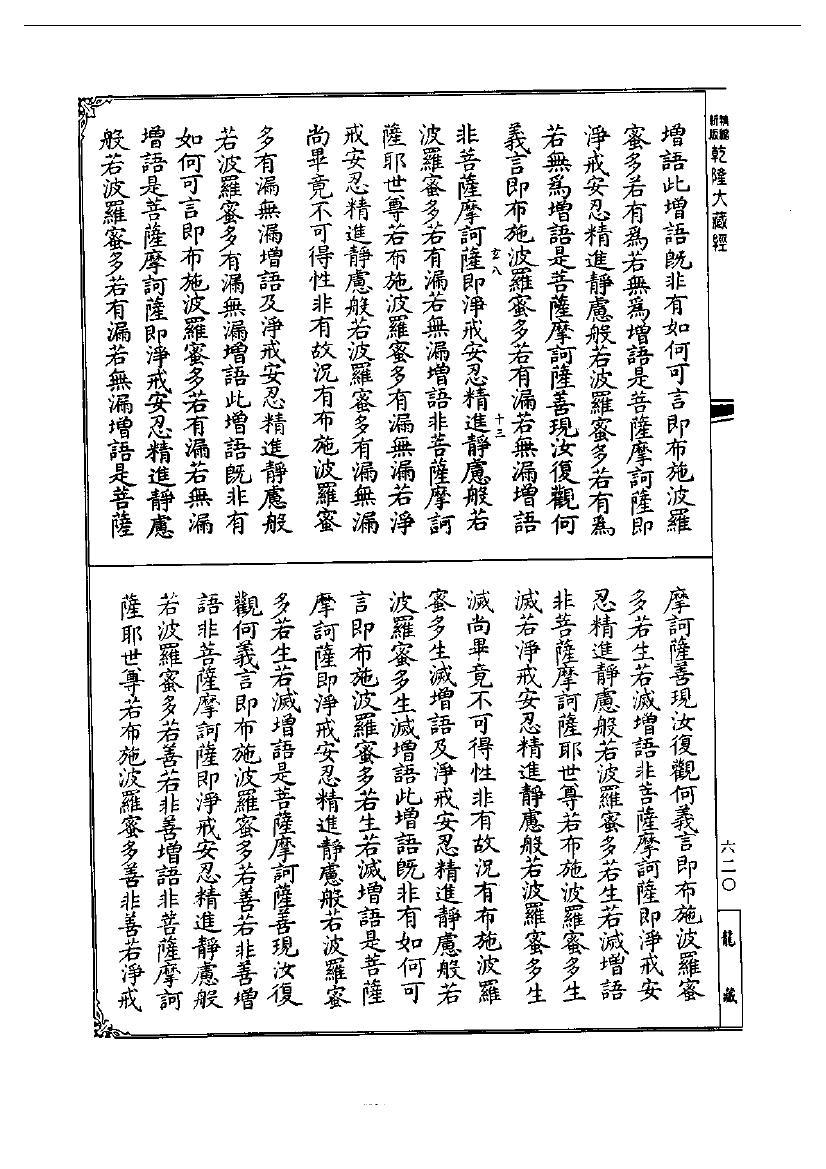 精縮新版
乾隆大藏經
增語此增語既非有如何可言即布施波羅
蜜多若有爲若無爲增語是菩薩摩訶薩即
淨戒安忍精進靜慮般若波羅蜜多若有爲
若無爲增語是菩薩摩訶薩善現汝復觀何
義言即布施波羅蜜多若有漏若無漏增語
玄八 十三
非菩薩摩訶薩即淨戒安忍精進靜慮般若
波羅蜜多若有漏若無漏增語非菩薩摩訶
薩耶世尊若布施波羅蜜多有漏無漏若淨
戒安忍精進靜慮般若波羅蜜多有漏無漏
尚畢竟不可得性非有故況有布施波羅蜜
多有漏無漏增語及淨戒安忍精進靜慮般
若波羅蜜多有漏無漏增語此增語既非有
如何可言即布施波羅蜜多若有漏若無漏
增語是菩薩摩訶薩即淨戒安忍精進靜慮
般若波羅蜜多若有漏若無漏增語是菩薩
摩訶薩善現汝復觀何義言即布施波羅蜜
多若生若滅增語非菩薩摩訶薩即淨戒安
忍精進靜慮般若波羅蜜多若生若滅增語
非菩薩摩訶薩耶世尊若布施波羅蜜多生
滅若淨戒安忍精進靜慮般若波羅蜜多生
滅尚畢竟不可得性非有故況有布施波羅
蜜多生滅增語及淨戒安忍精進靜慮般若
波羅蜜多生滅增語此增語既非有如何可
言即布施波羅蜜多若生若滅增語是菩薩
摩訶薩即淨戒安忍精進靜慮般若波羅蜜
多若生若滅增語是菩薩摩訶薩善現汝復
觀何義言即布施波羅蜜多若善若非善增
語非菩薩摩訶薩即淨戒安忍精進靜慮般
若波羅蜜多若善若非善增語非菩薩摩訶
薩耶世尊若布施波羅蜜多善非善若淨戒
六二〇
龍藏